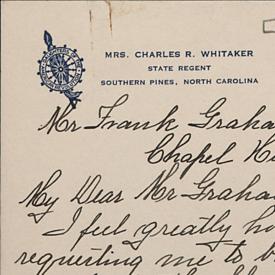 MRS. CHARLES R. WHITAKER
STATE REGENT
SOUTHERN PINES, NORTH CAROLINA
Mr Frank Graha
Chapel Hi
My Dear Mr Graha
I feel greatly ho
requesting me to b